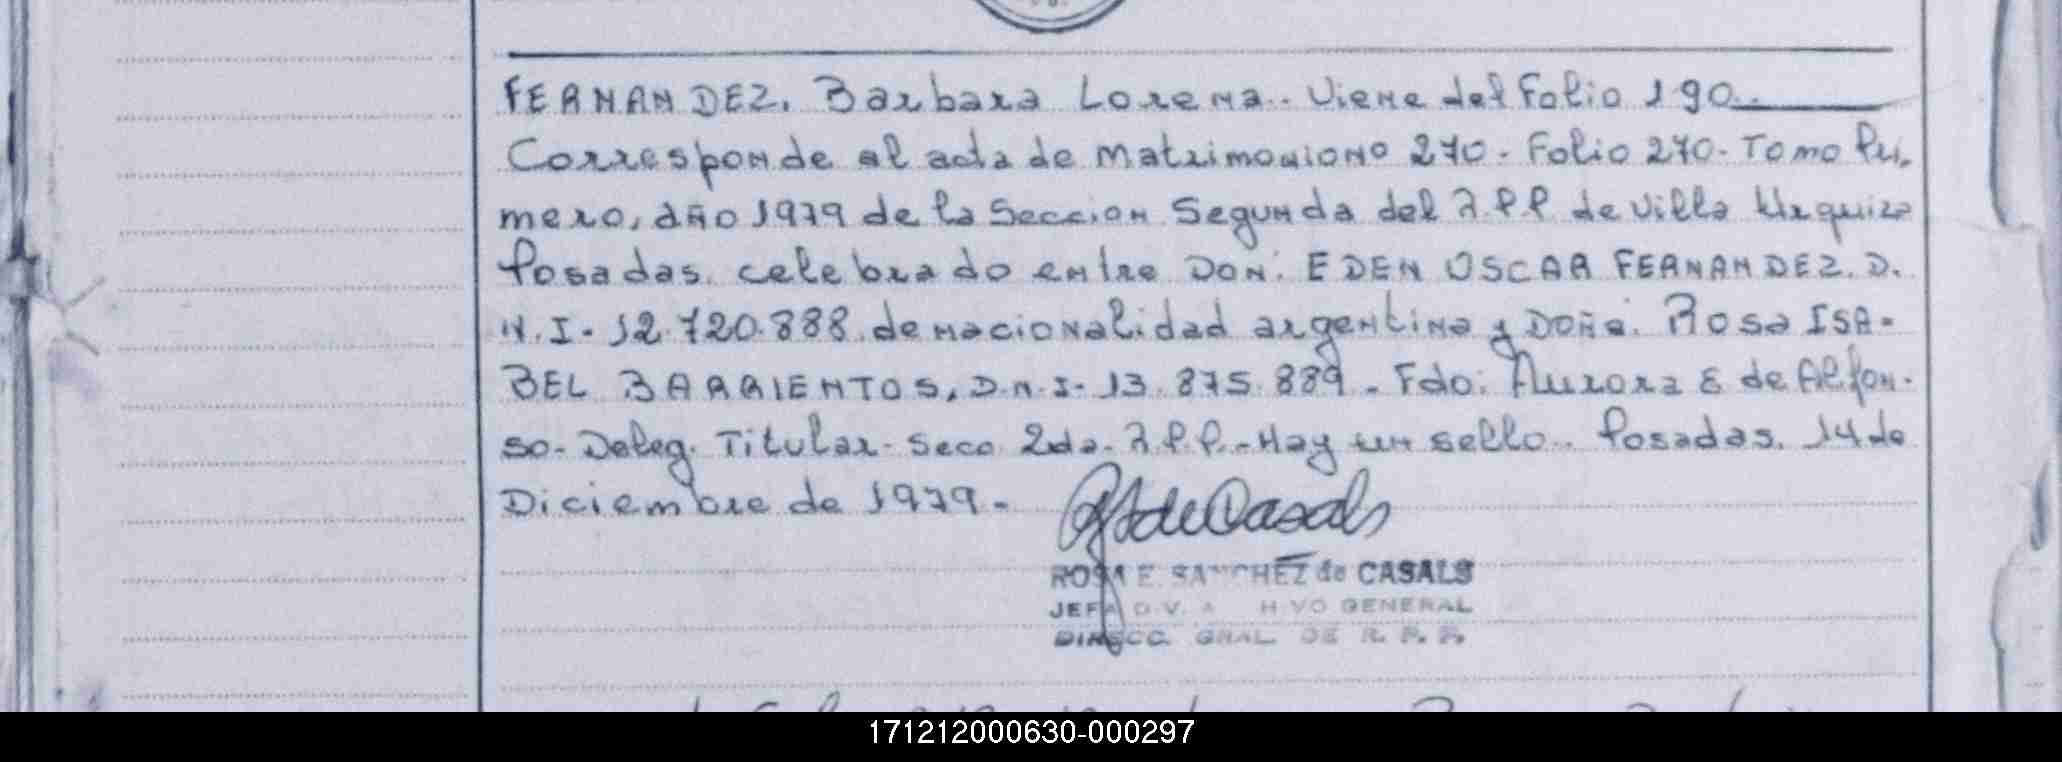 FERNANDEZ, Barbara Lorena.. Viene del Folio 190.
Corresponde al acta de Matrimonio Nº 270. Folio 270. Tomo Pri.
mero, año 1979 de la Seccion Segunda del R.P.P de Villa Urquiza
Posadas. celebrado entre Don: EDEN OSCAR FERNANDEZ. D.
N.I- 12.720.888. de nacionalidad argentina y Doña: Rosa ISA-
BEL BARRIENTOS, D.N.I- 13.875.889. Fdo: Aurora E de Alfon-
so- Deleg. Titular- Secc 2da. R.P.P.-Hay un sello.. Posadas, 14 de
Diciembre de 1979.
ROSA E. SANCHEZ de CASALS
JEFA GENERAL
DIRECC. GRAL. DE R. P. P.
171212000630-000297